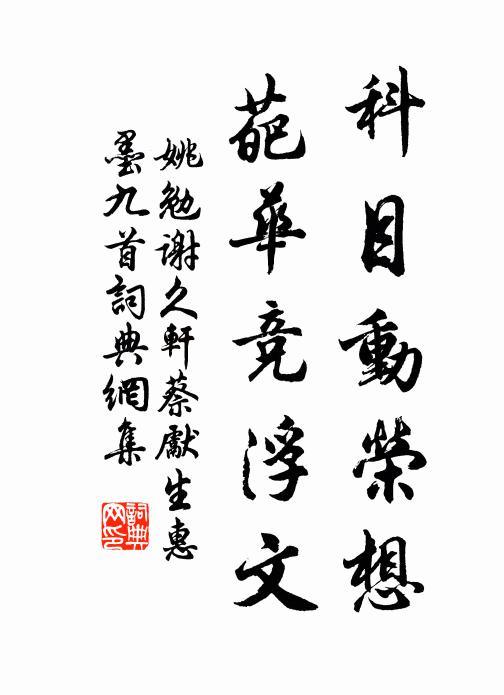 科目動榮想
葩華竞浮文
姚勉謝久軒蔡獻生惠
墨九首詞典網集
詞典网印